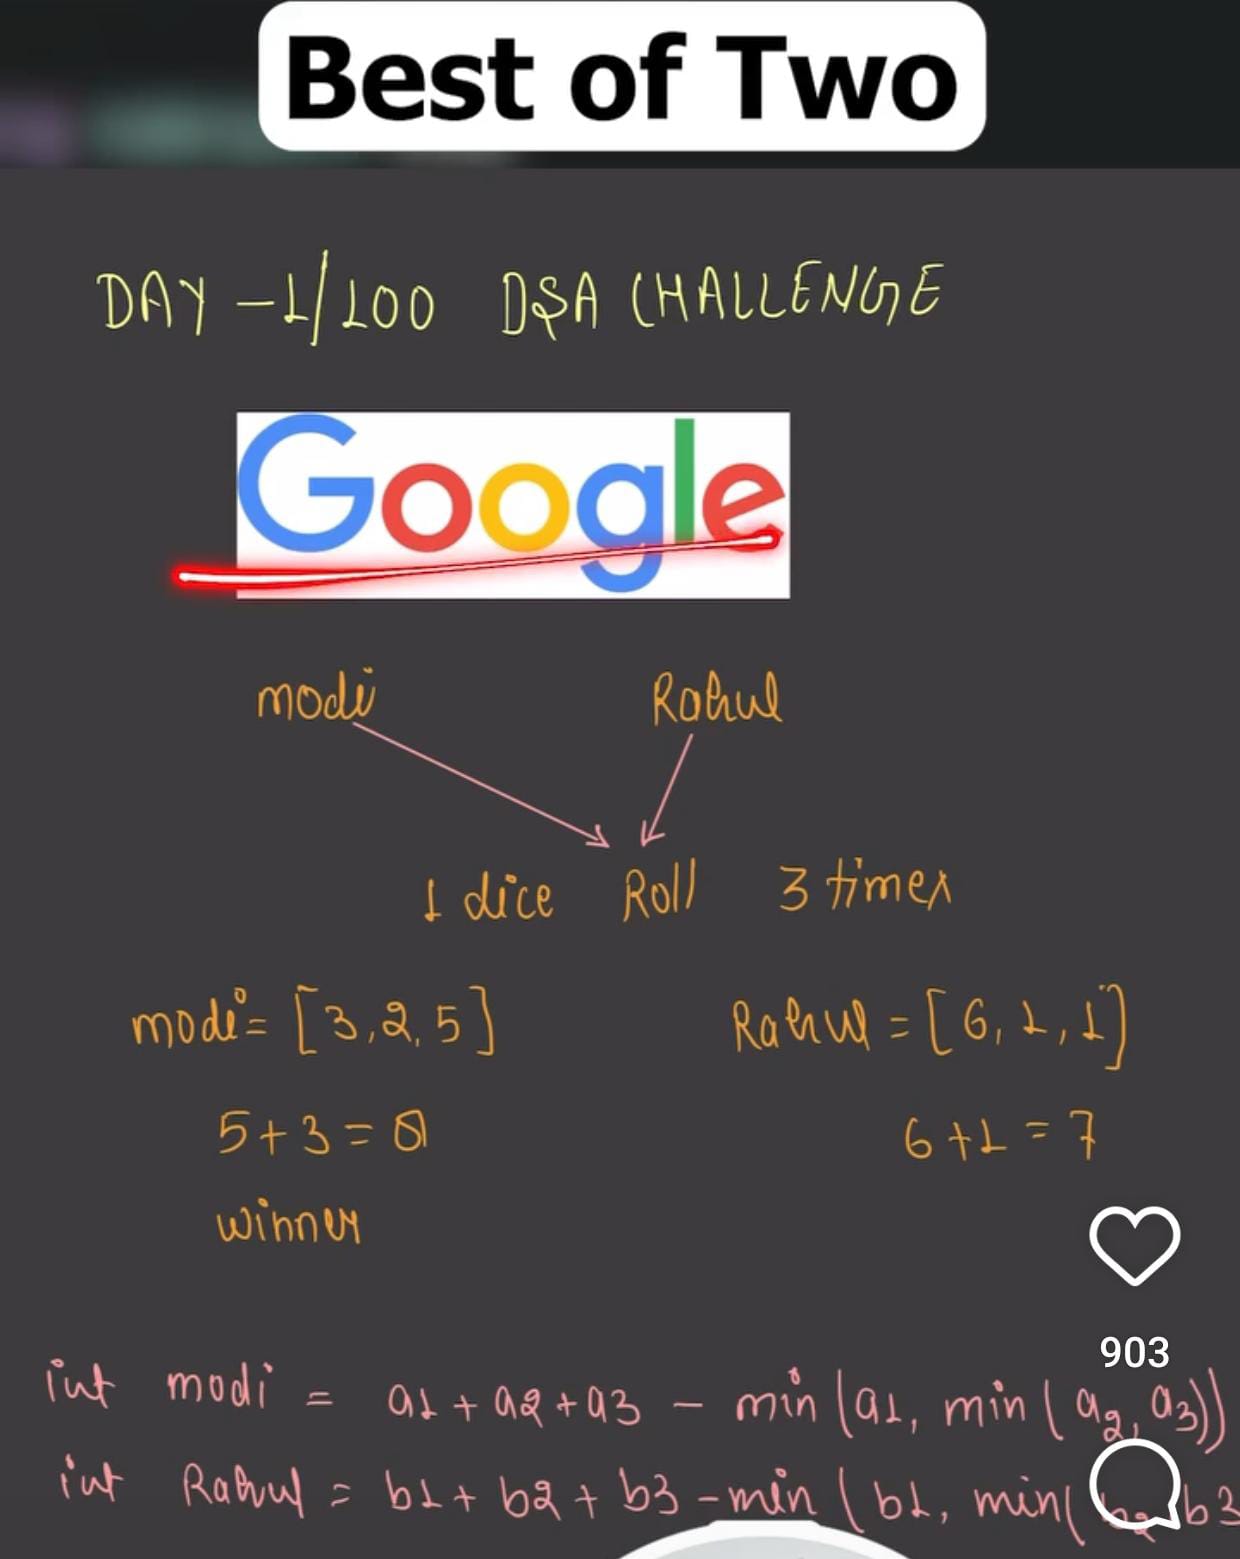 Best of Two
DAY -1/100 DSA CHALLENGE
Google
modi Rahul
1 dice Roll 3 times
modi = [3,2,5] Rahul = [6,1,1]
5+3=8 6+1=7
winner
903
int modi = a1 + a2 + a3 - min (a1, min ( a2, a3))
int Rahul = b1 + b2 + b3 - min ( b1, min( b2 b3